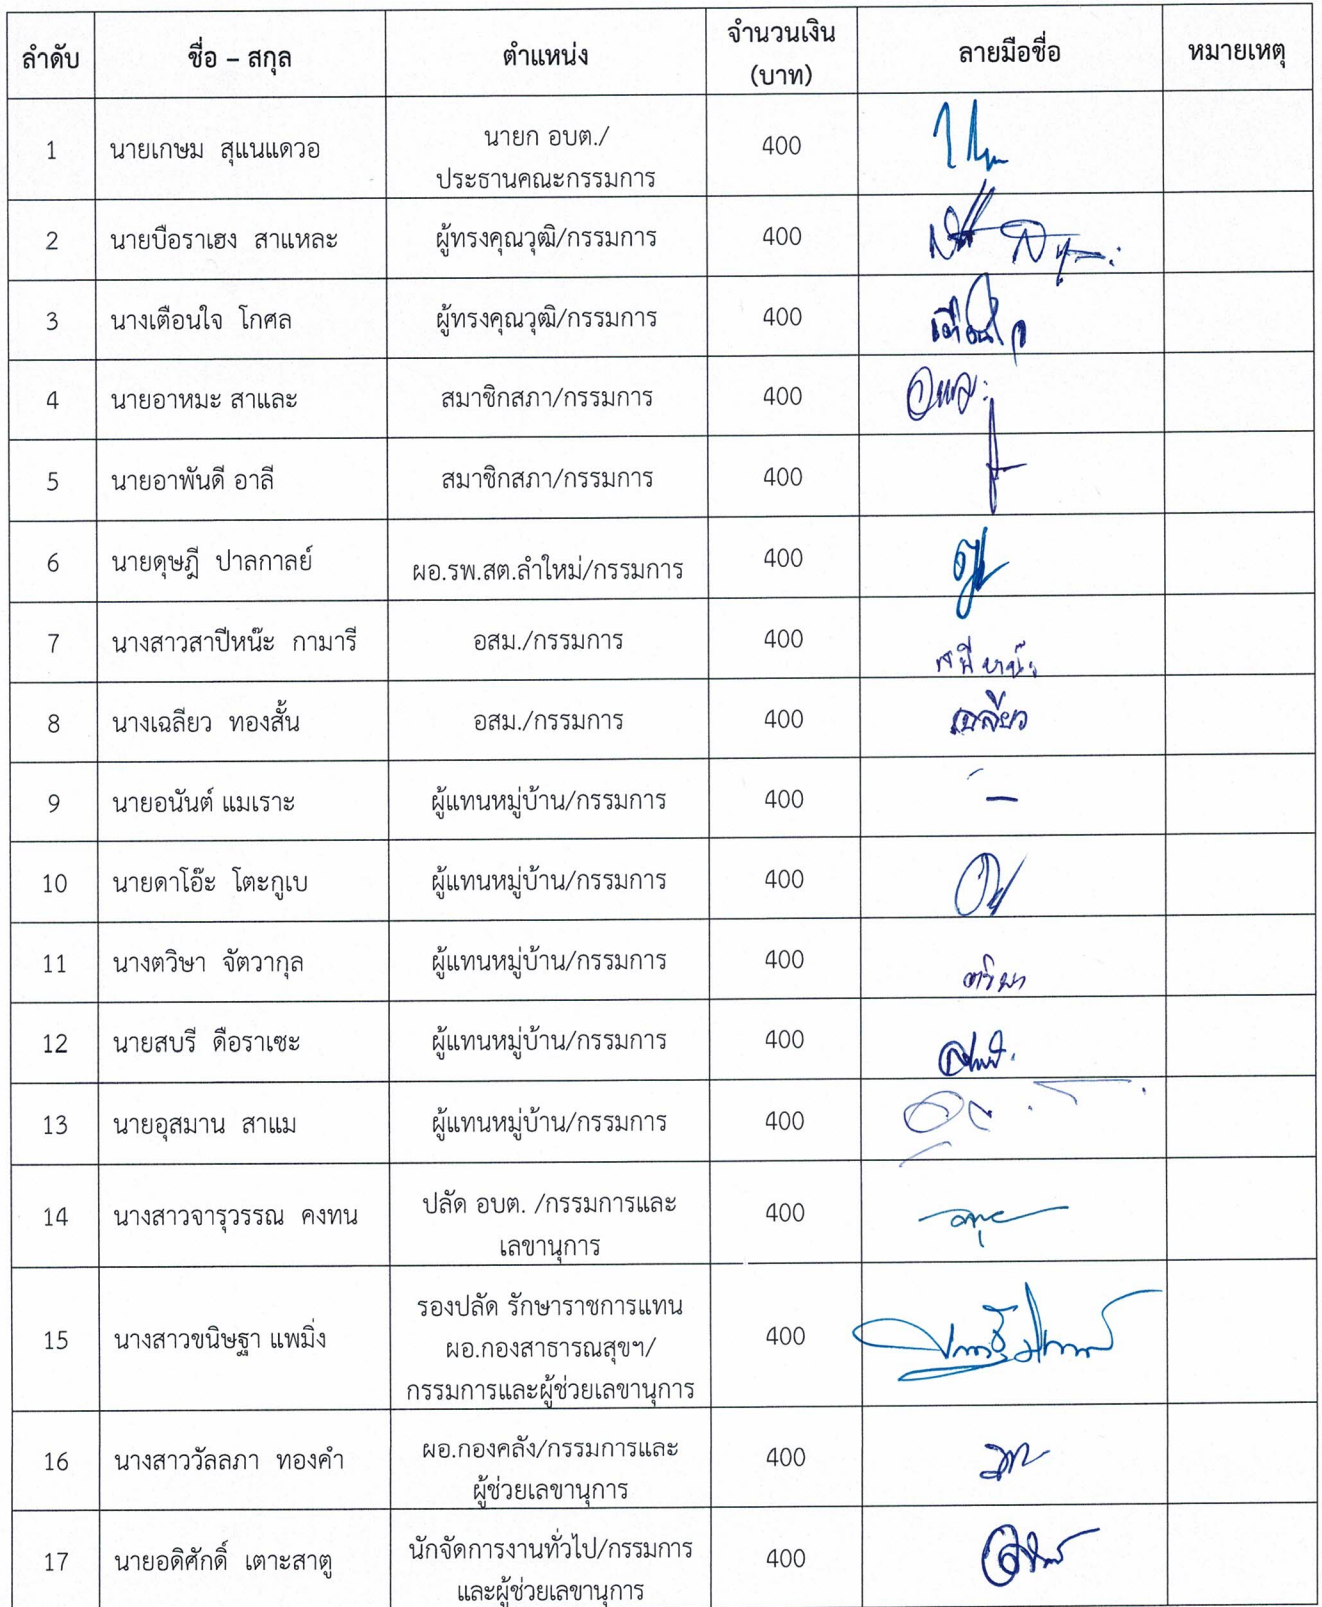 ลำดับ ชื่อ – สกุล ตำแหน่ง จำนวนเงิน (บาท) ลายมือชื่อ หมายเหตุ
1 นายเกษม สุแนแดวอ นายก อบต./ 400
ประธานคณะกรรมการ
2 นายบือราเฮง สาแหละ ผู้ทรงคุณวุฒิ/กรรมการ 400
3 นางเตือนใจ โกศล ผู้ทรงคุณวุฒิ/กรรมการ 400 เตือนใจ
4 นายอาหมะ สาและ สมาชิกสภา/กรรมการ 400
5 นายอาพันดี อาลี สมาชิกสภา/กรรมการ 400
6 นายดุษฎี ปาลกาลย์ ผอ.รพ.สต.ลำใหม่/กรรมการ 400
7 นางสาวสาปีหน๊ะ กามารี อสม./กรรมการ 400
8 นางเฉลียว ทองสั้น อสม./กรรมการ 400 เฉลียว
9 นายอนันต์ แมเราะ ผู้แทนหมู่บ้าน/กรรมการ 400 –
10 นายดาโอ๊ะ โตะกูเบ ผู้แทนหมู่บ้าน/กรรมการ 400
11 นางตวิษา จัตวากุล ผู้แทนหมู่บ้าน/กรรมการ 400
12 นายสบรี ดือราเซะ ผู้แทนหมู่บ้าน/กรรมการ 400
13 นายอุสมาน สาแม ผู้แทนหมู่บ้าน/กรรมการ 400
14 นางสาวจารุวรรณ คงทน ปลัด อบต. /กรรมการและ 400
เลขานุการ
รองปลัด รักษาราชการแทน
15 นางสาวขนิษฐา แพมิ่ง ผอ.กองสาธารณสุขฯ/ 400
กรรมการและผู้ช่วยเลขานุการ
16 นางสาววัลลภา ทองคำ ผอ.กองคลัง/กรรมการและ 400
ผู้ช่วยเลขานุการ
17 นายอดิศักดิ์ เตาะสาตู นักจัดการงานทั่วไป/กรรมการ 400
และผู้ช่วยเลขานุการ